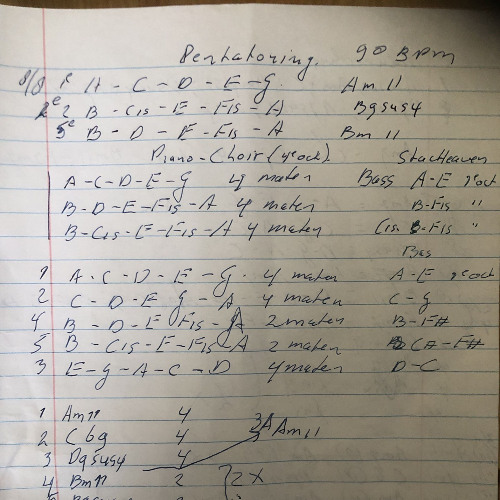 Pentatoning. 90 BPM
8/8 1e A - C - D - E - G. Am 11
2e 2 B - Cis - E - Fis - A B9sus4
5e B - D - E - Fis - A Bm 11
Piano-Choir (4e oct)
A - C - D - E - G 4 maten Bass A-E
B - D - E - Fis - A 4 maten B-Fis "
B - Cis - E - Fis - A 4 maten Cis B-Fis "
Bas
1 A - C - D - E - G. 4 maten A-E
2 C - D - E G - A 4 maten C-G
4 B - D - E Fis - A 2 maten B-F#
5 B - Cis - E - Fis A 2 maten C#-F#
3 E - G - A - C - D 4 maten D-C
1 Am11 4
2 C 6 9 4 3A Am11
3 D9sus4 4
4 Bm11 2 2X